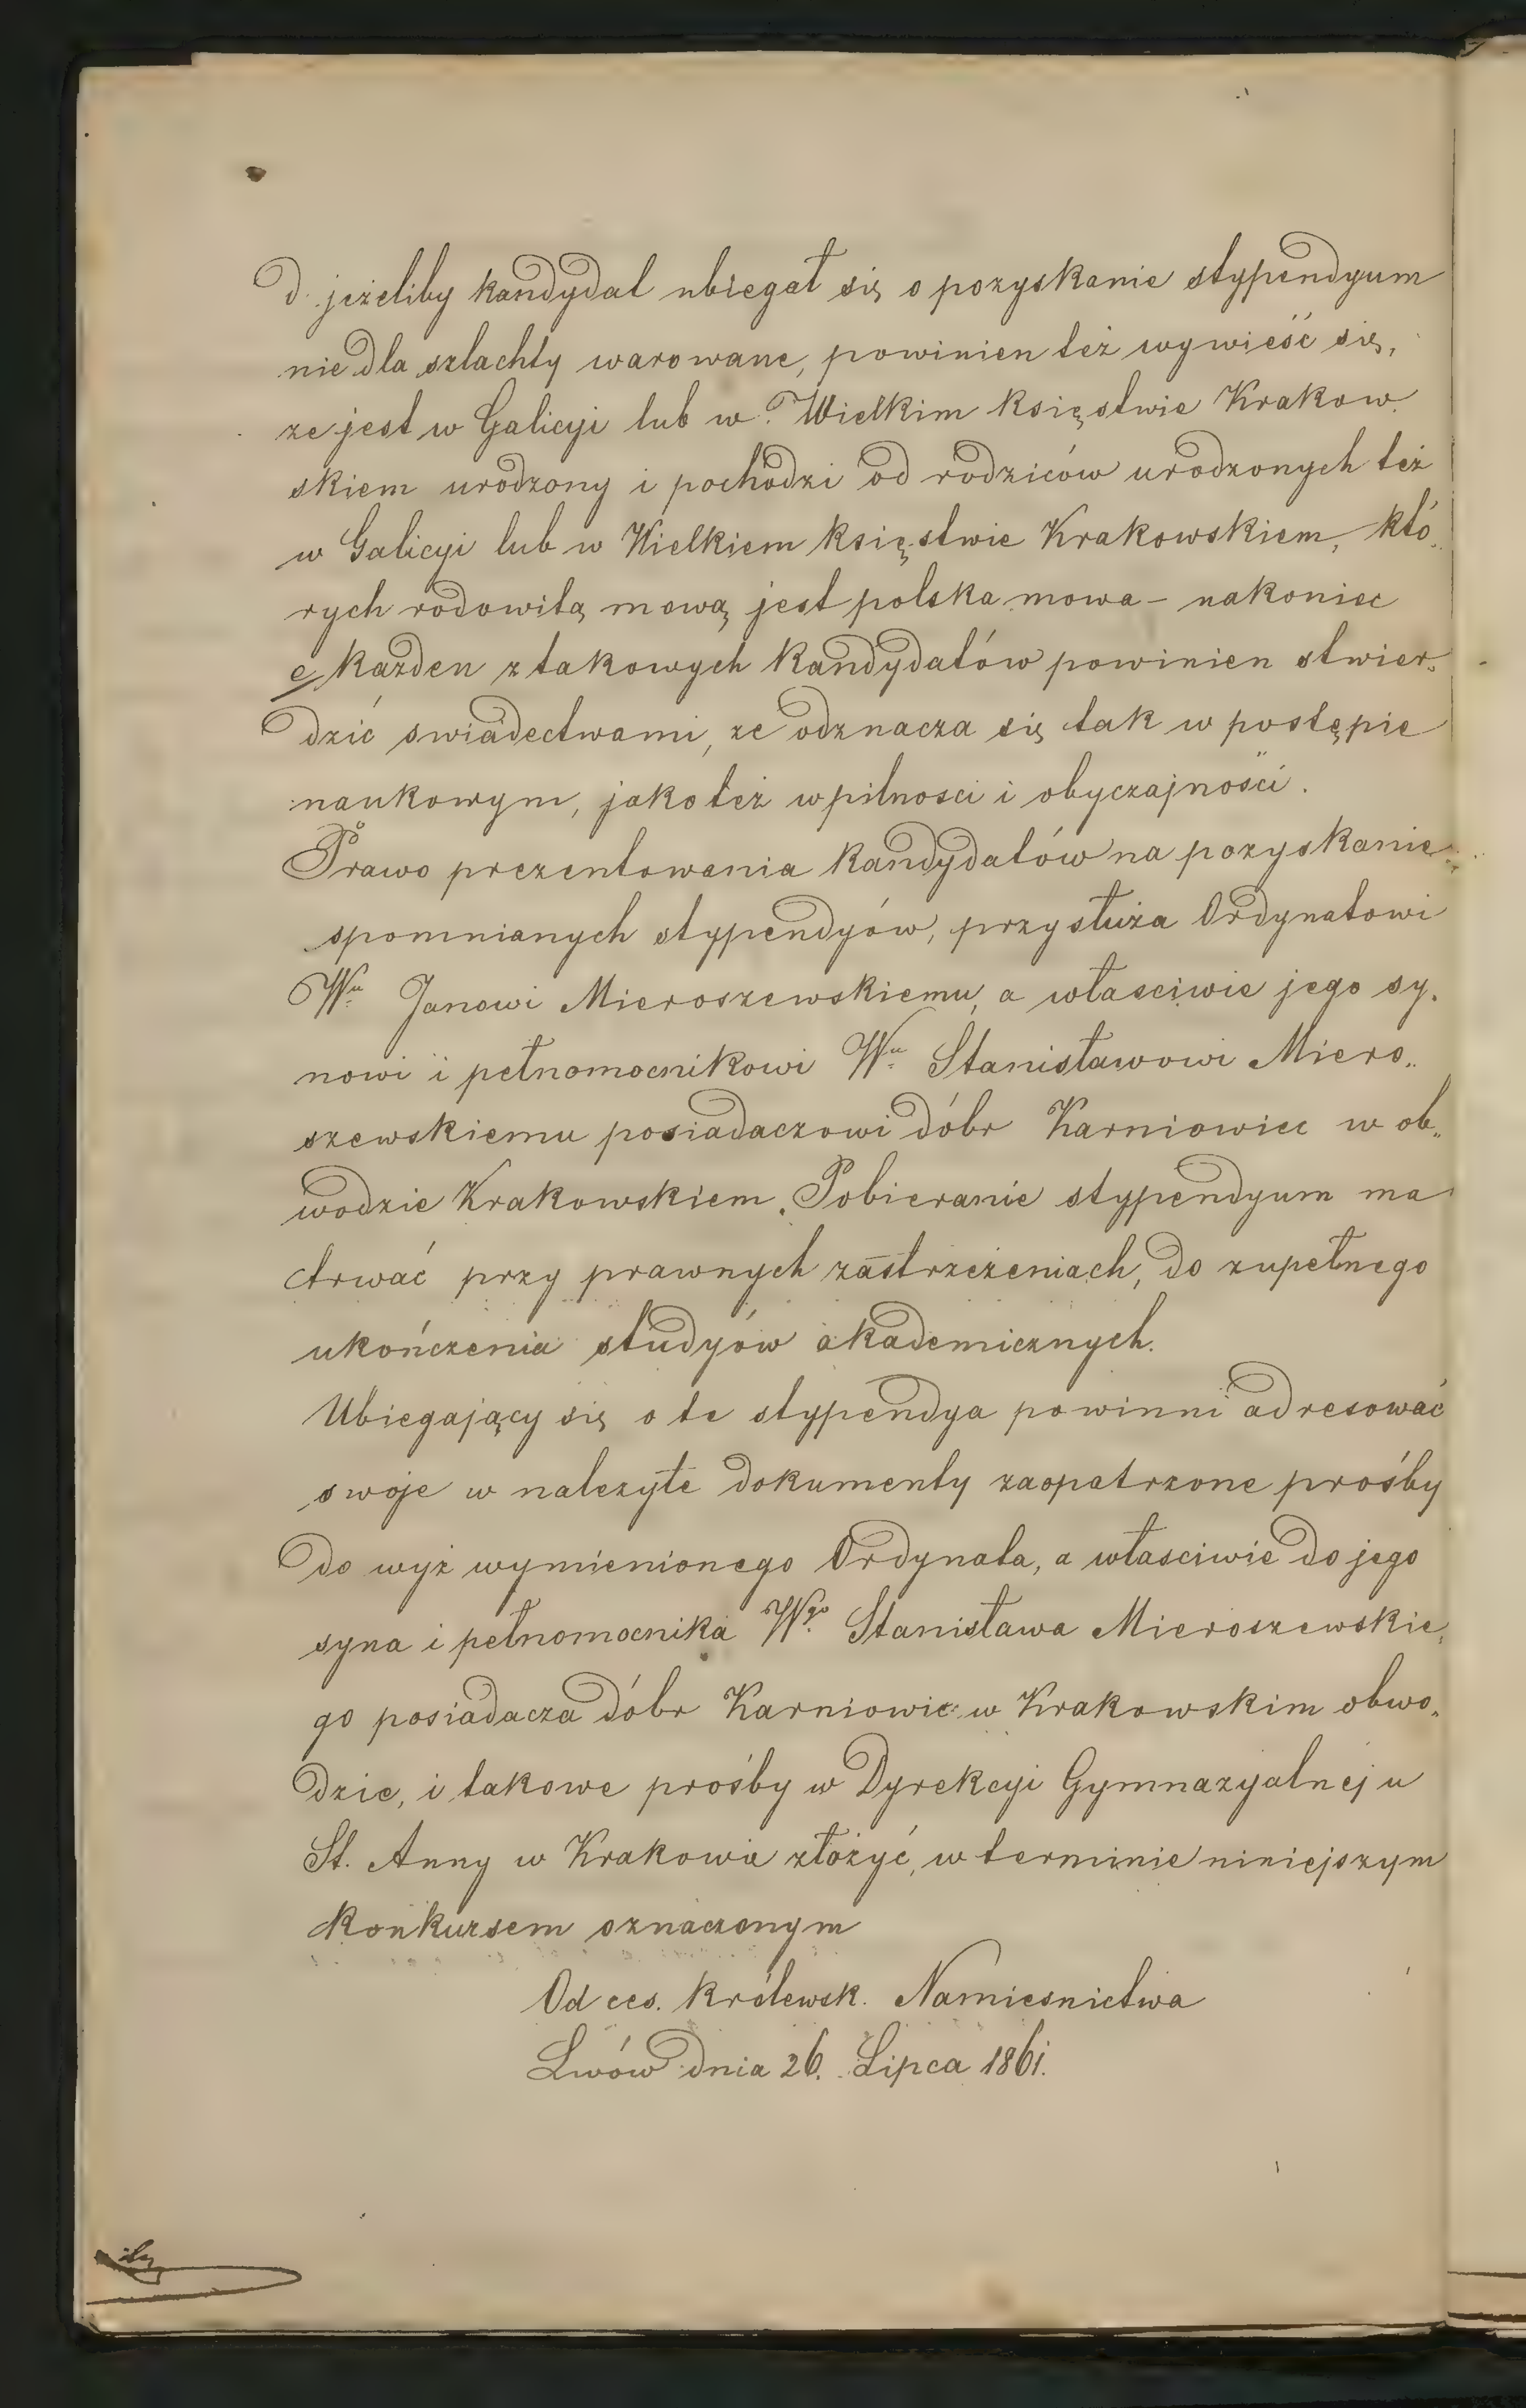 d. jeżeliby kandydat ubiegał się o pozyskanie stypendyum
nie dla szlachty warowane, powinien też wywieść się,
ze jest w Galicyi lub w Wielkim księstwie Krakow.
skiem urodzony i pochodzi od rodziców urodzonych też
w Galicyi lub w Wielkiem księstwie Krakowskiem, któ„
rych rodowitą mową jest polska mowa – nakoniec
e, każden z takowych kandydatów powinien stwier„
dzić swiadectwami, ze odznacza się tak w postępie
naukowym, jako też w pilnosci i obyczajności.
Prawo prezentowania kandydatów na pozyskanie
spomnianych stypendyów, przysłuża Ordynatowi
Wu Janowi Mieroszewskiemu, a własciwie jego sy„
nowi i pełnomocnikowi Wu Stanisławowi Miero„
szewskiemu posiadaczowi dóbr Karniowiec w ob„
wodzie Krakowskiem. Pobieranie stypendyum ma
trwać przy prawnych zastrzeżeniach, do zupełnego
ukończenia studyów akademicznych.
Ubiegający się o te stypendya powinni adresować
swoje w nalezyte dokumenty zaopatrzone prośby
do wyż wymienionego Ordynata, a własciwie do jego
syna i pełnomocnika Wgo Stanisława Mieroszewskie„
go posiadacza dóbr Karniowic w Krakowskim obwo„
dzie, i takowe prośby w Dyrekcyi Gymnazyalnej u
St. Anny w Krakowie złożyć, w terminie niniejszym
konkursem oznaczonym
Od ces. królewsk. Namiesnictwa
Lwów dnia 26. Lipca 1861.